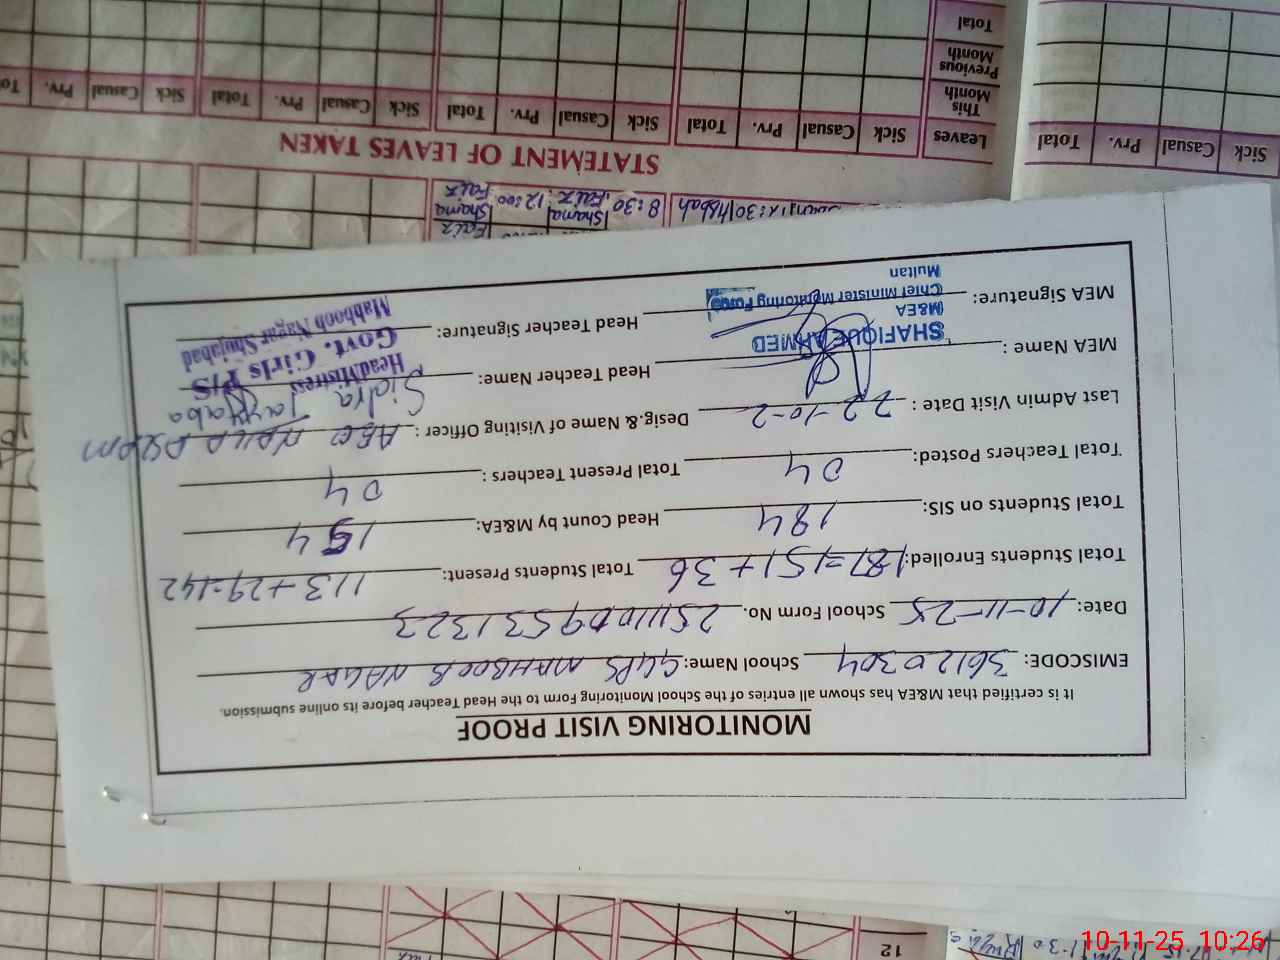 MONITORING VISIT PROOF
It is certified that M&EA has shown all entries of the School Monitoring Form to the Head Teacher before its online submission.
EMISCODE: 36120304 School Name: GGPS MAHBOOB NAGAR
Date: 10-11-25 School Form No. 25111009531323
Total Students Enrolled: 187=151+36 Total Students Present: 113+29=142
Total Students on SIS: 184 Head Count by M&EA: 154
Total Teachers Posted: 04 Total Present Teachers : 04
Last Admin Visit Date : 22-10-2 Desig.&.Name of Visiting Officer : AEO
MEA Name : Head Teacher Name: Sidra Tayyaba
SHAFIQUE AHMED
M&EA
Chief Minister Monitoring Force
Multan
HeadMistress
Govt. Girls P/S
Mahboob Nagar Shujabad
MEA Signature: Head Teacher Signature:
8:30 12:00
Shama Shama
STATEMENT OF LEAVES TAKEN
Leaves Sick Casual Prv. Total Sick Casual Prv. Total Sick Casual Prv. Total Sick Casual Prv.
Sick Casual Prv. Total
This Month
Previous Month
Total
12
10-11-25 10:26